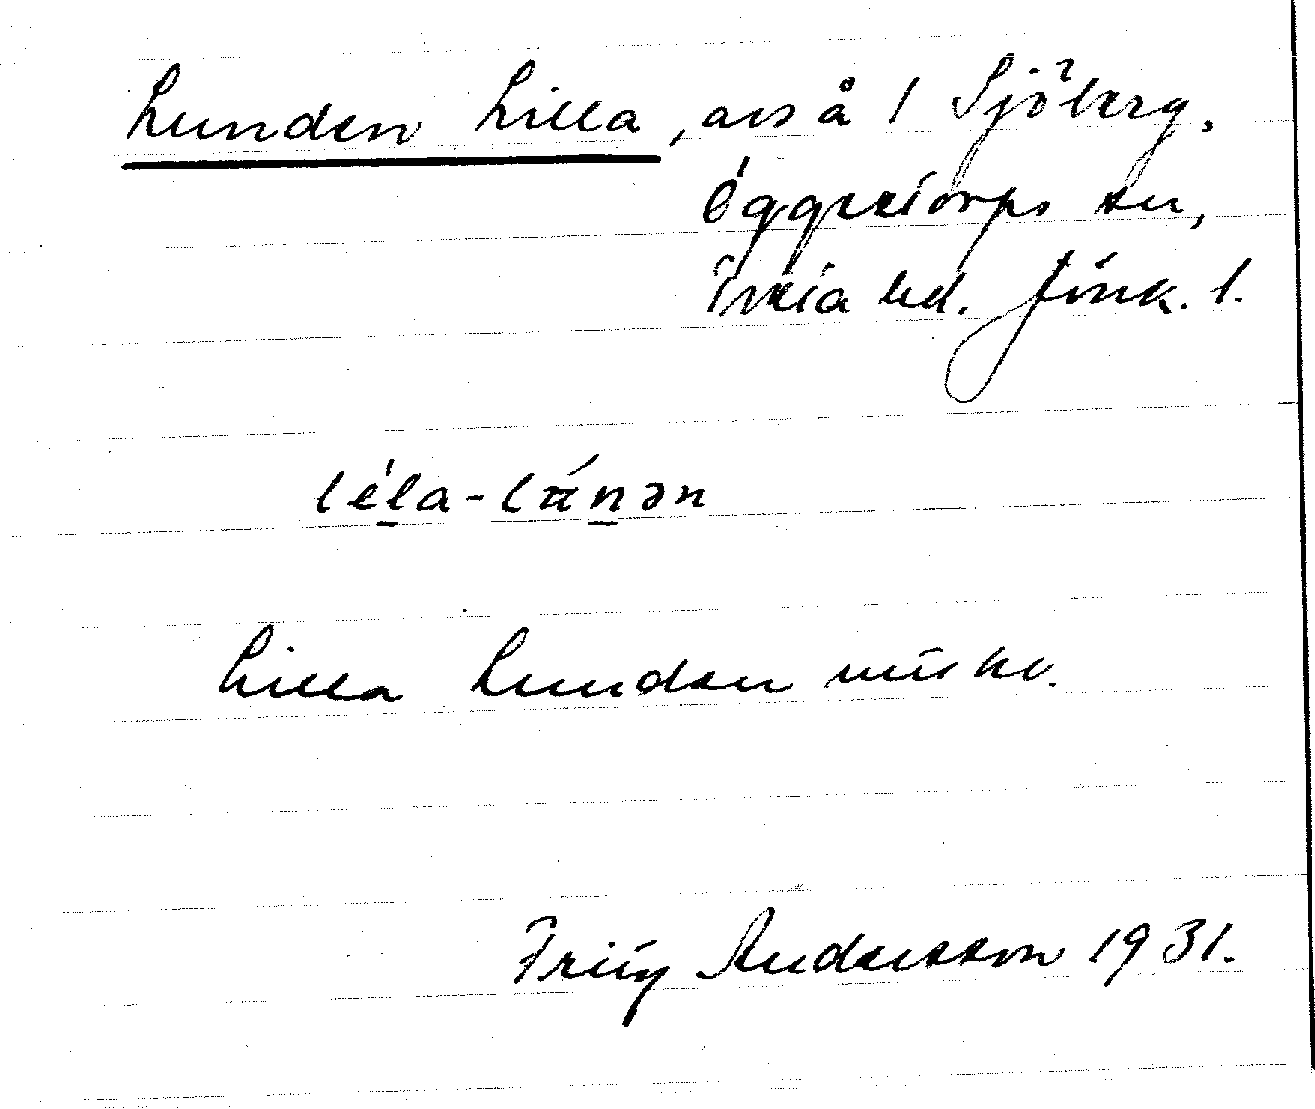 Lunden Lilla, avs å 1 Sjöberg,
Öggestorps sn,
Tveta hd. Jönk. l.
lela-lánən
Lilla Lunden
Fritz Andersson 1931.